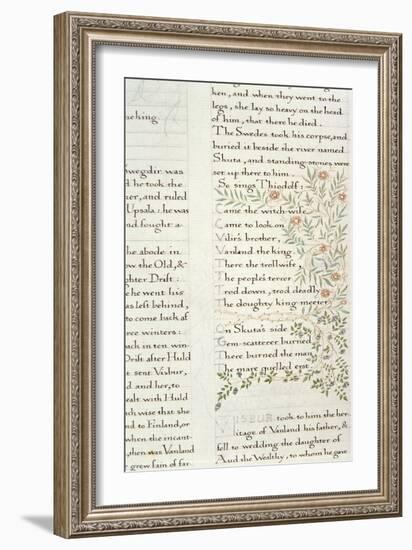 aching.
wegdir was
he took the
er, and ruled
Upsala: he was
nd fought a-
he abode in
ow the Old, &
ghter Drift:
e he went his
as left behind,
to come back af
ree winters:
ack in ten win
Drift after Huld
t sent Visbur,
d and her, to
ealt with Huld
uch wise that she
nd to Finland, or
when the incant-
, then was Vanland
r grew fain of far
ken, and when they went to the
legs, she lay so heavy on the head
of him, that there he died.
The Swedes took his corpse, and
buried it beside the river named
Skuta, and standing-stones were
set up there to him.
So sings Thiodolf:
Came the witch-wife
Came to look on
Vilir's brother,
Vanland the king:
There the troll wife,
The people's tercer
Trod down, trod deadly
The doughty king-meeter:
On Skuta's side
Gem-scatterer burned
There burned the man
The mare quelled erst.
VISBUR took to him the her
itage of Vanland his father, &
fell to wedding the daughter of
Aud the Wealthy, to whom he gave